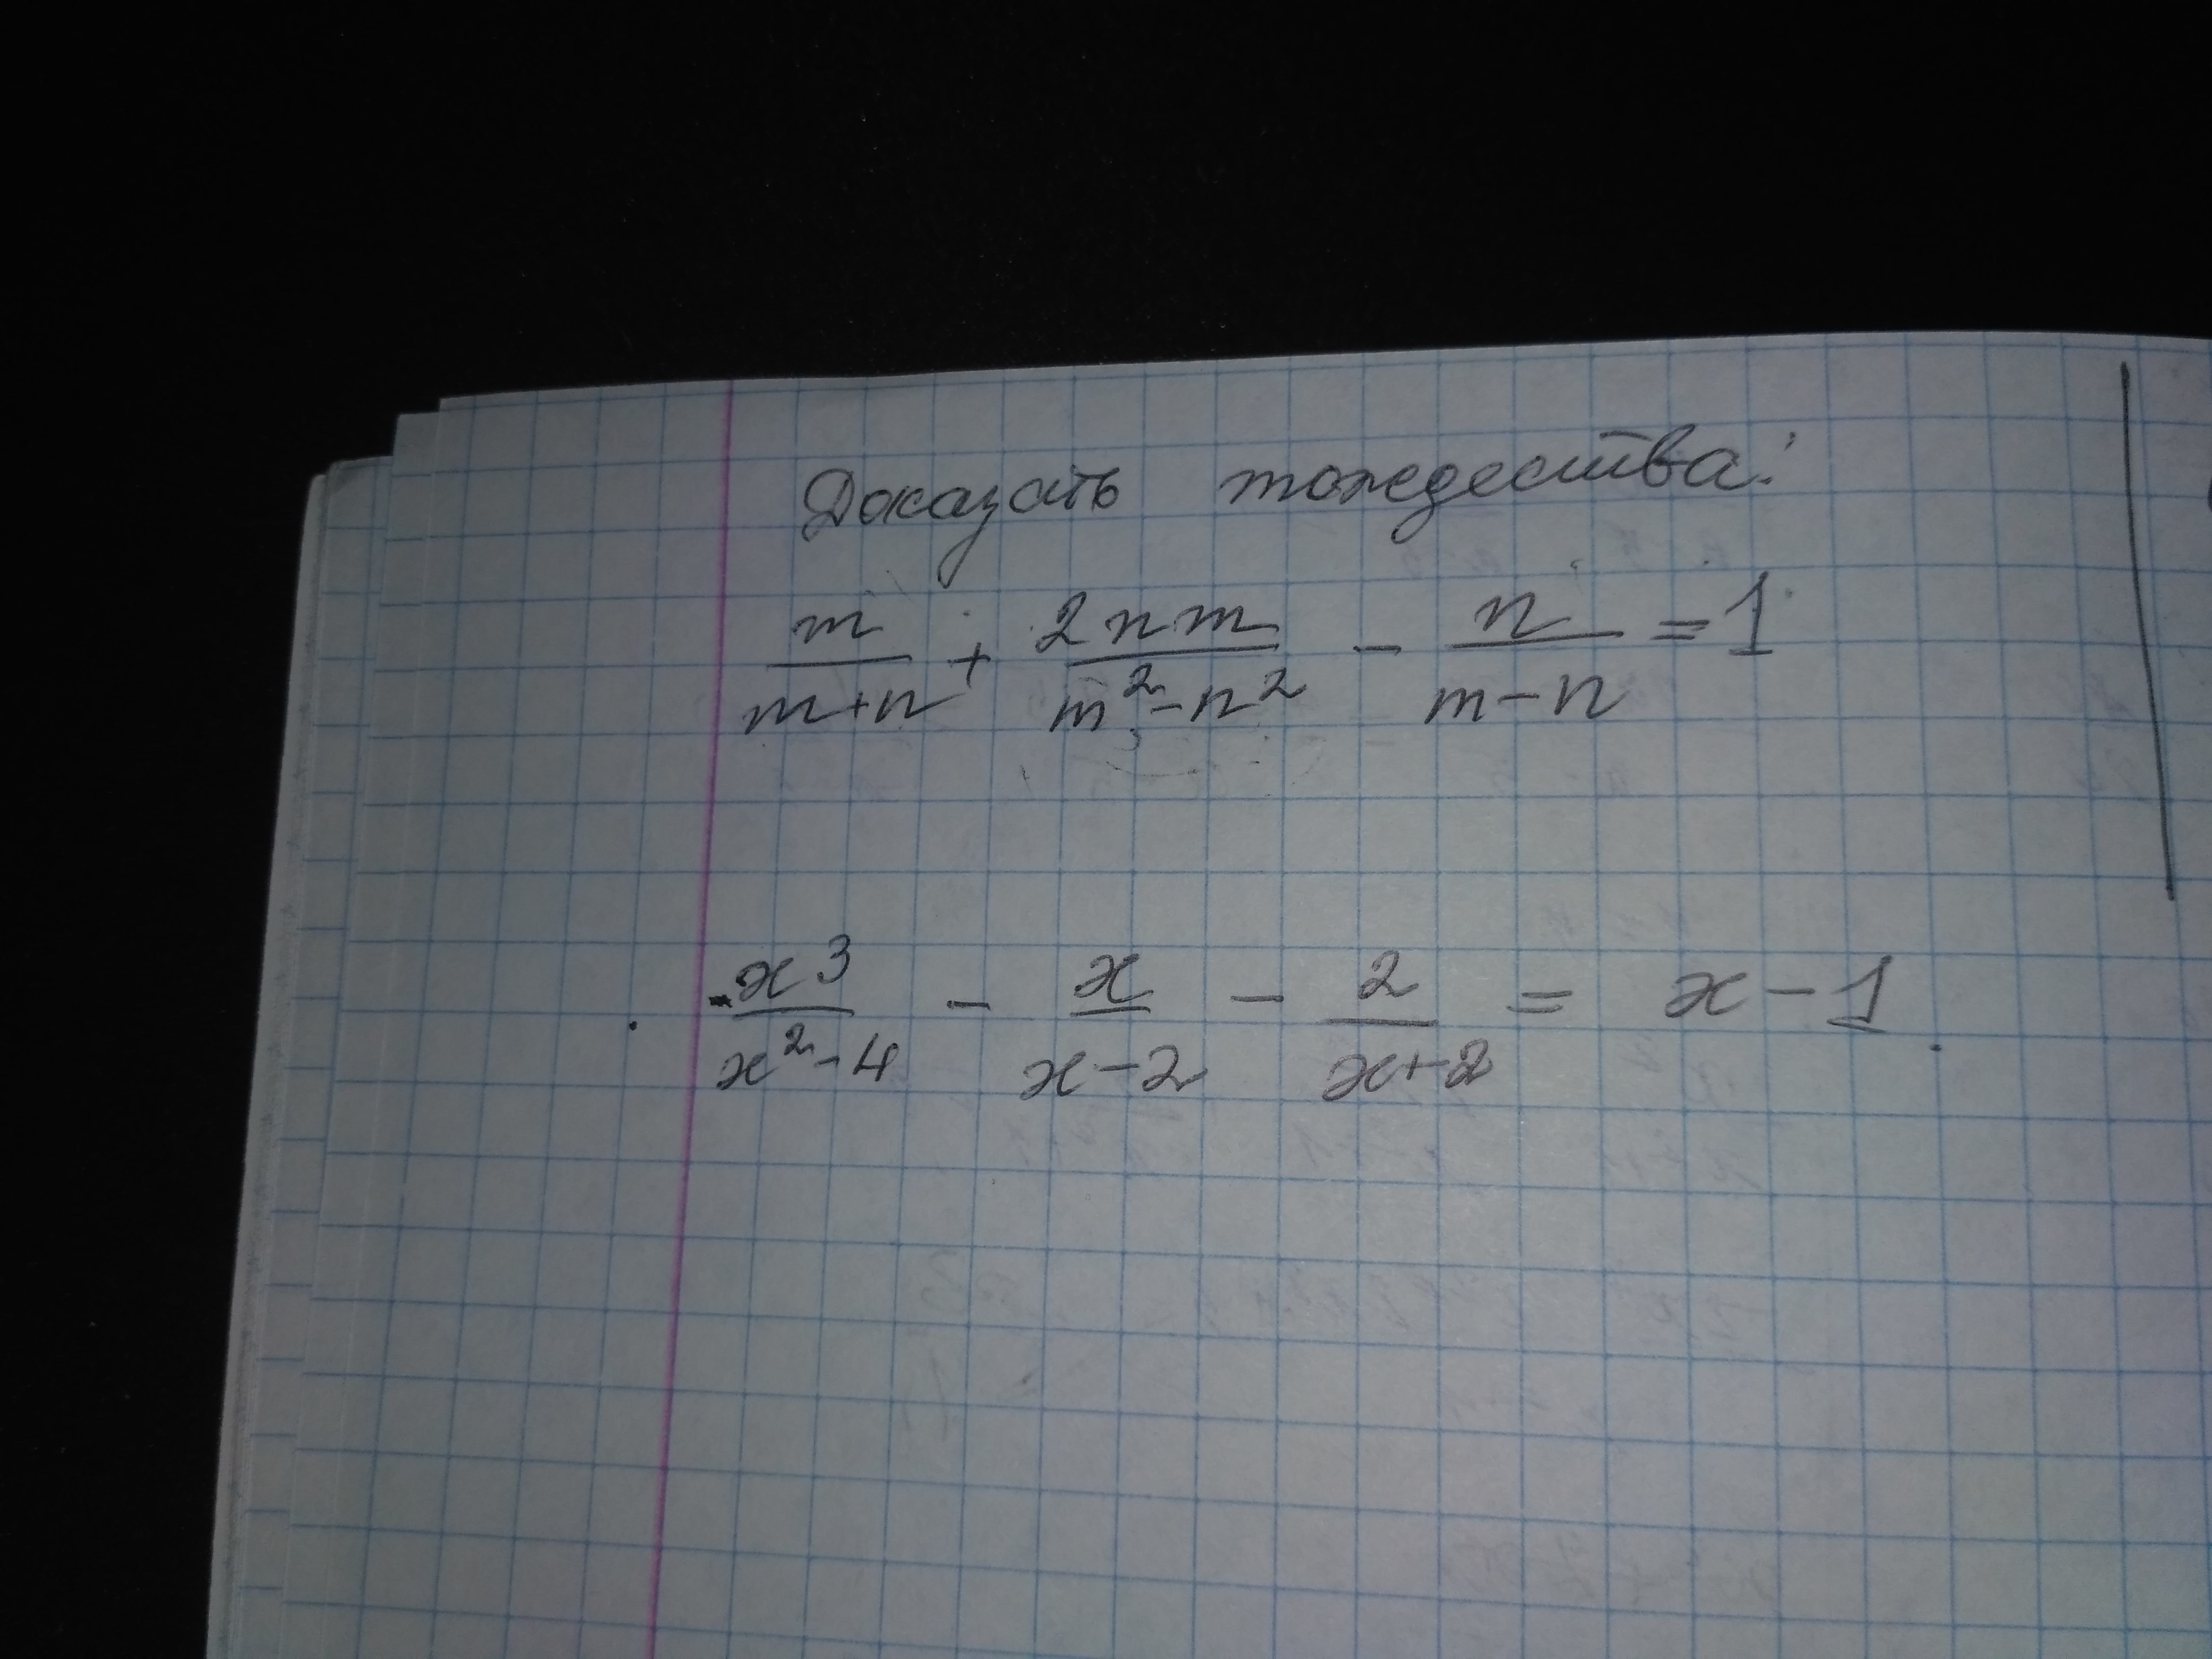 Доказать тождества:
m/(m+n) + 2nm/(m²-n²) - n/(m-n) = 1
x³/(x²-4) - x/(x-2) - 2/(x+2) = x-1.